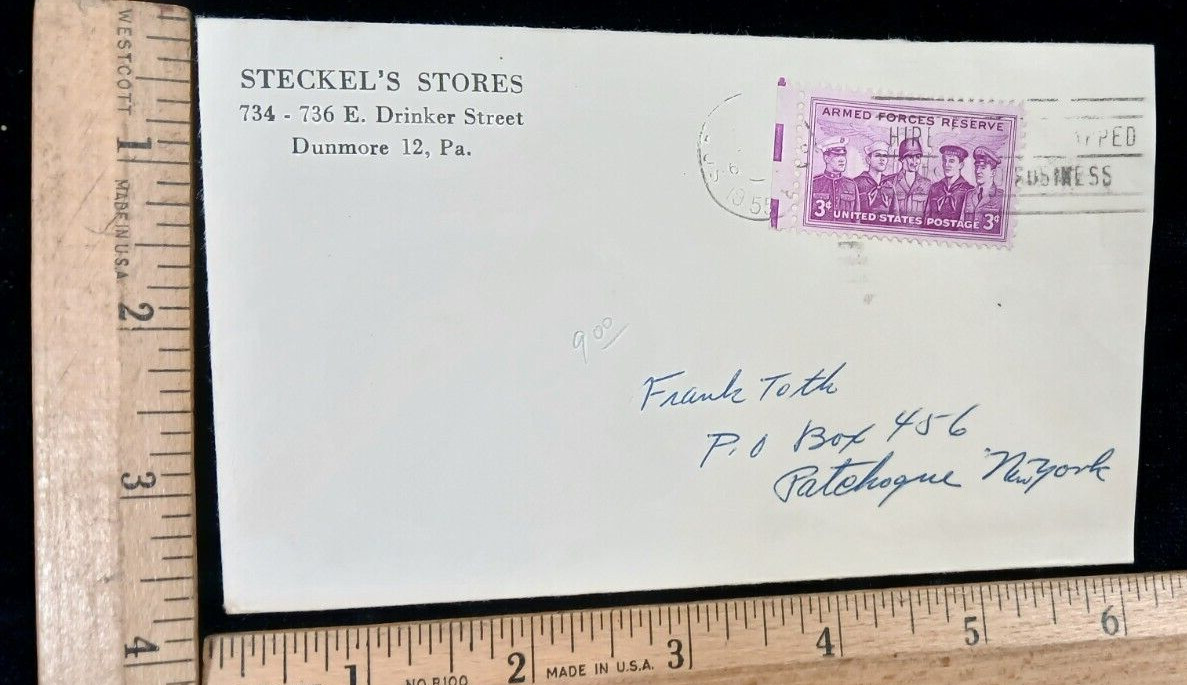 STECKEL'S STORES
734 - 736 E. Drinker Street
Dunmore 12, Pa.
ARMED FORCES RESERVE
3¢ UNITED STATES POSTAGE 3¢
6
1955
HIRE
BUSINESS
9.00
Frank Toth
P.O Box 456
Patchogue New York
WESTCOTT
MADE IN U.S.A
1
2
3
4
1
2
3
4
5
6
NO R100
MADE IN U.S.A.